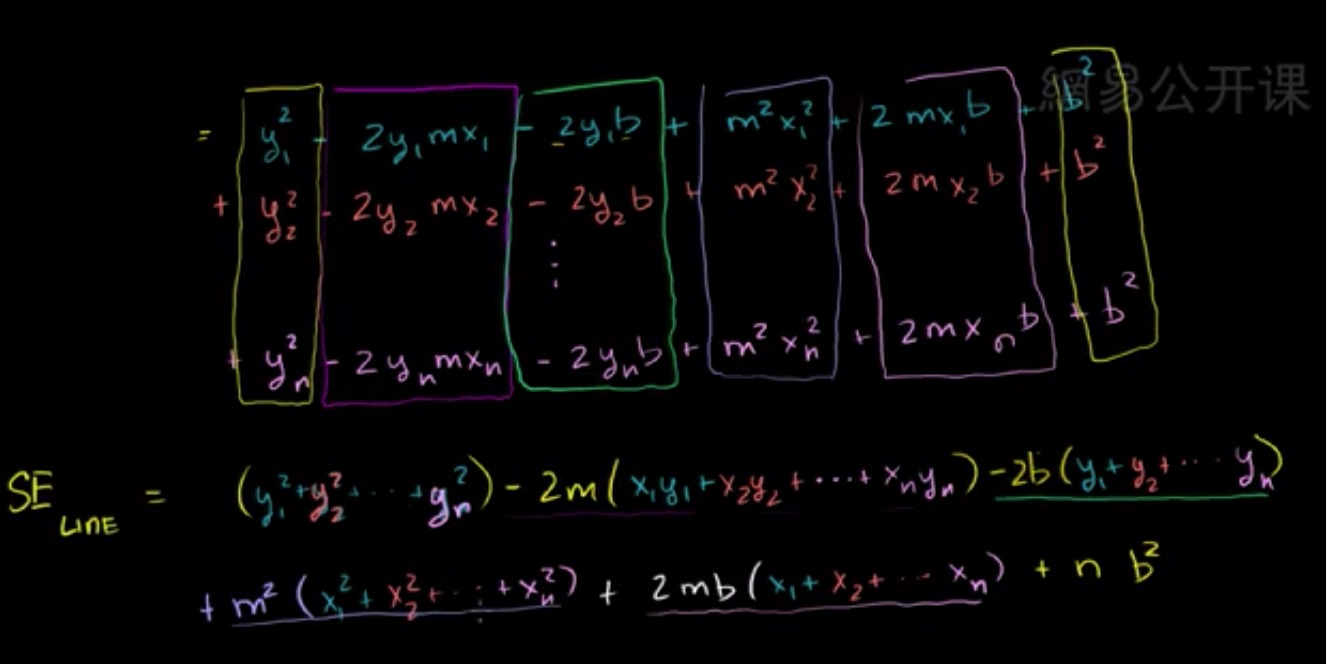 網易公开课
= y₁² - 2y₁mx₁ - 2y₁b + m²x₁² + 2mx₁b + b²
+ y₂² - 2y₂mx₂ - 2y₂b + m²x₂² + 2mx₂b + b²
⋮
+ yₙ² - 2yₙmxₙ - 2yₙb + m²xₙ² + 2mxₙb + b²
SE LINE = (y₁²+y₂²+···+yₙ²) - 2m(x₁y₁+x₂y₂+···+xₙyₙ) -2b(y₁+y₂+···yₙ)
+ m²(x₁²+x₂²+···+xₙ²) + 2mb(x₁+x₂+···xₙ) + nb²